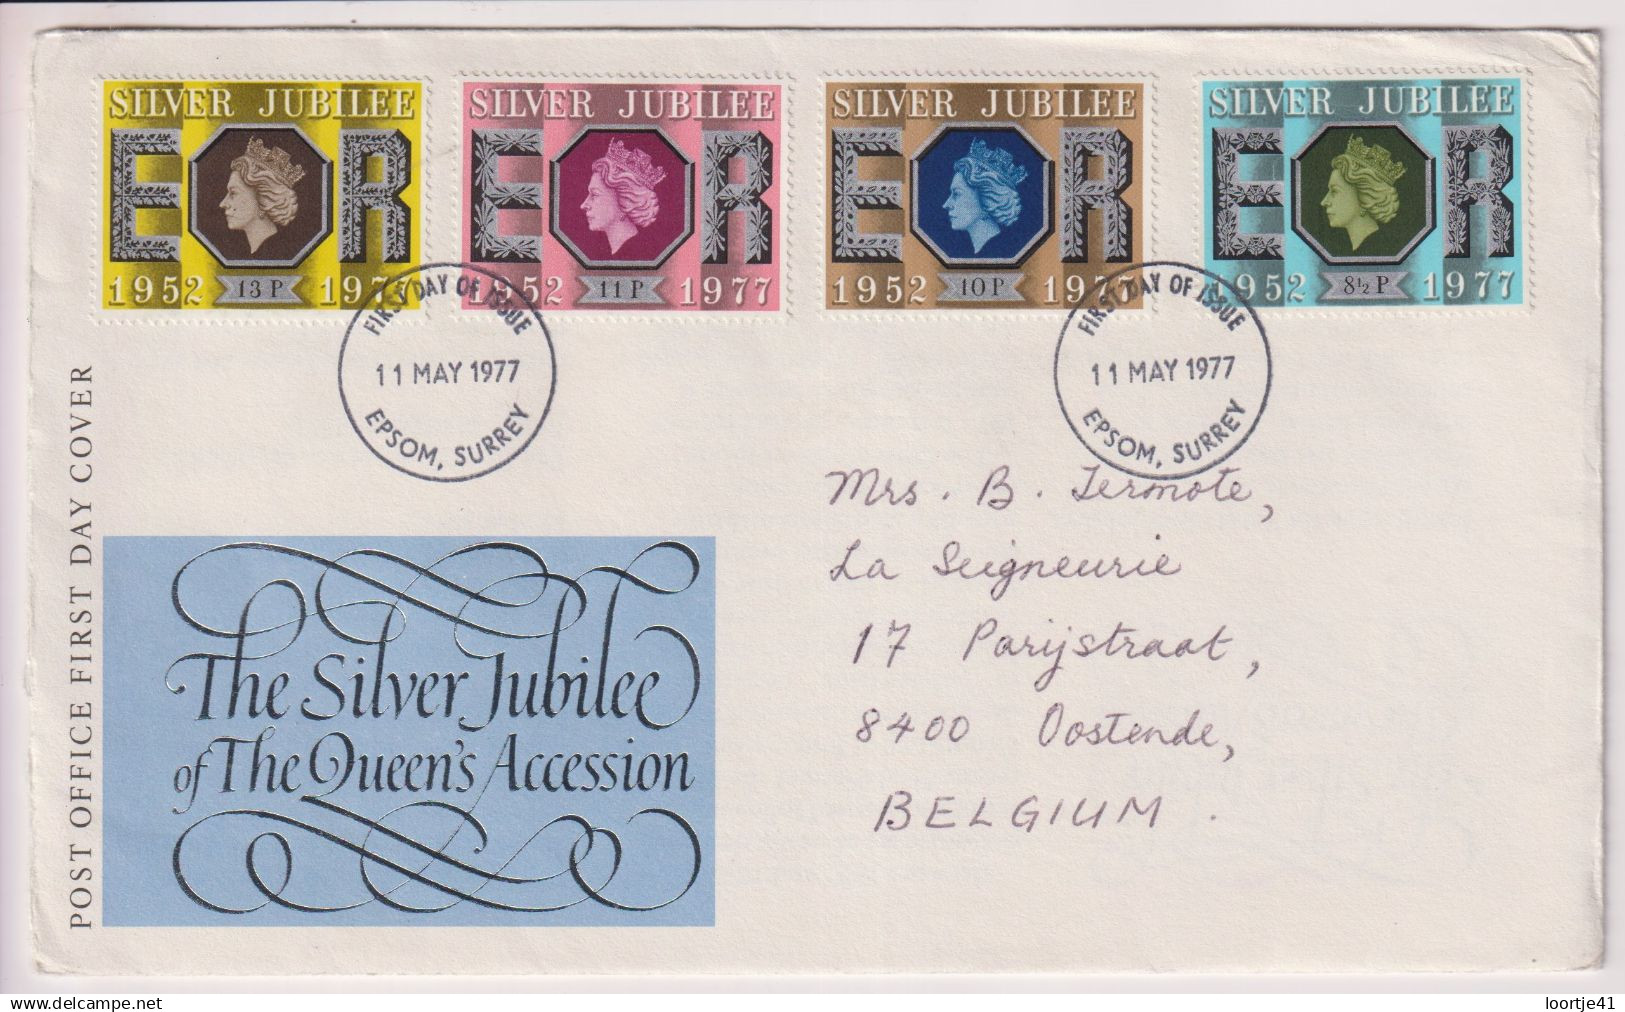 SILVER JUBILEE
E R
1952 13 P 1977
SILVER JUBILEE
E R
1952 11 P 1977
SILVER JUBILEE
E R
1952 10 P 1977
SILVER JUBILEE
E R
1952 8½ P 1977
FIRST DAY OF ISSUE
11 MAY 1977
EPSOM, SURREY
FIRST DAY OF ISSUE
11 MAY 1977
EPSOM, SURREY
POST OFFICE FIRST DAY COVER
The Silver Jubilee
of The Queen's Accession
Mrs. B. Termote,
La Seigneurie
17 Parijstraat,
8400 Oostende,
BELGIUM.
www.delcampe.net
loortje41